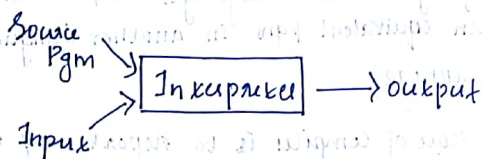 Source
Pgm
Interpreter
output
Input